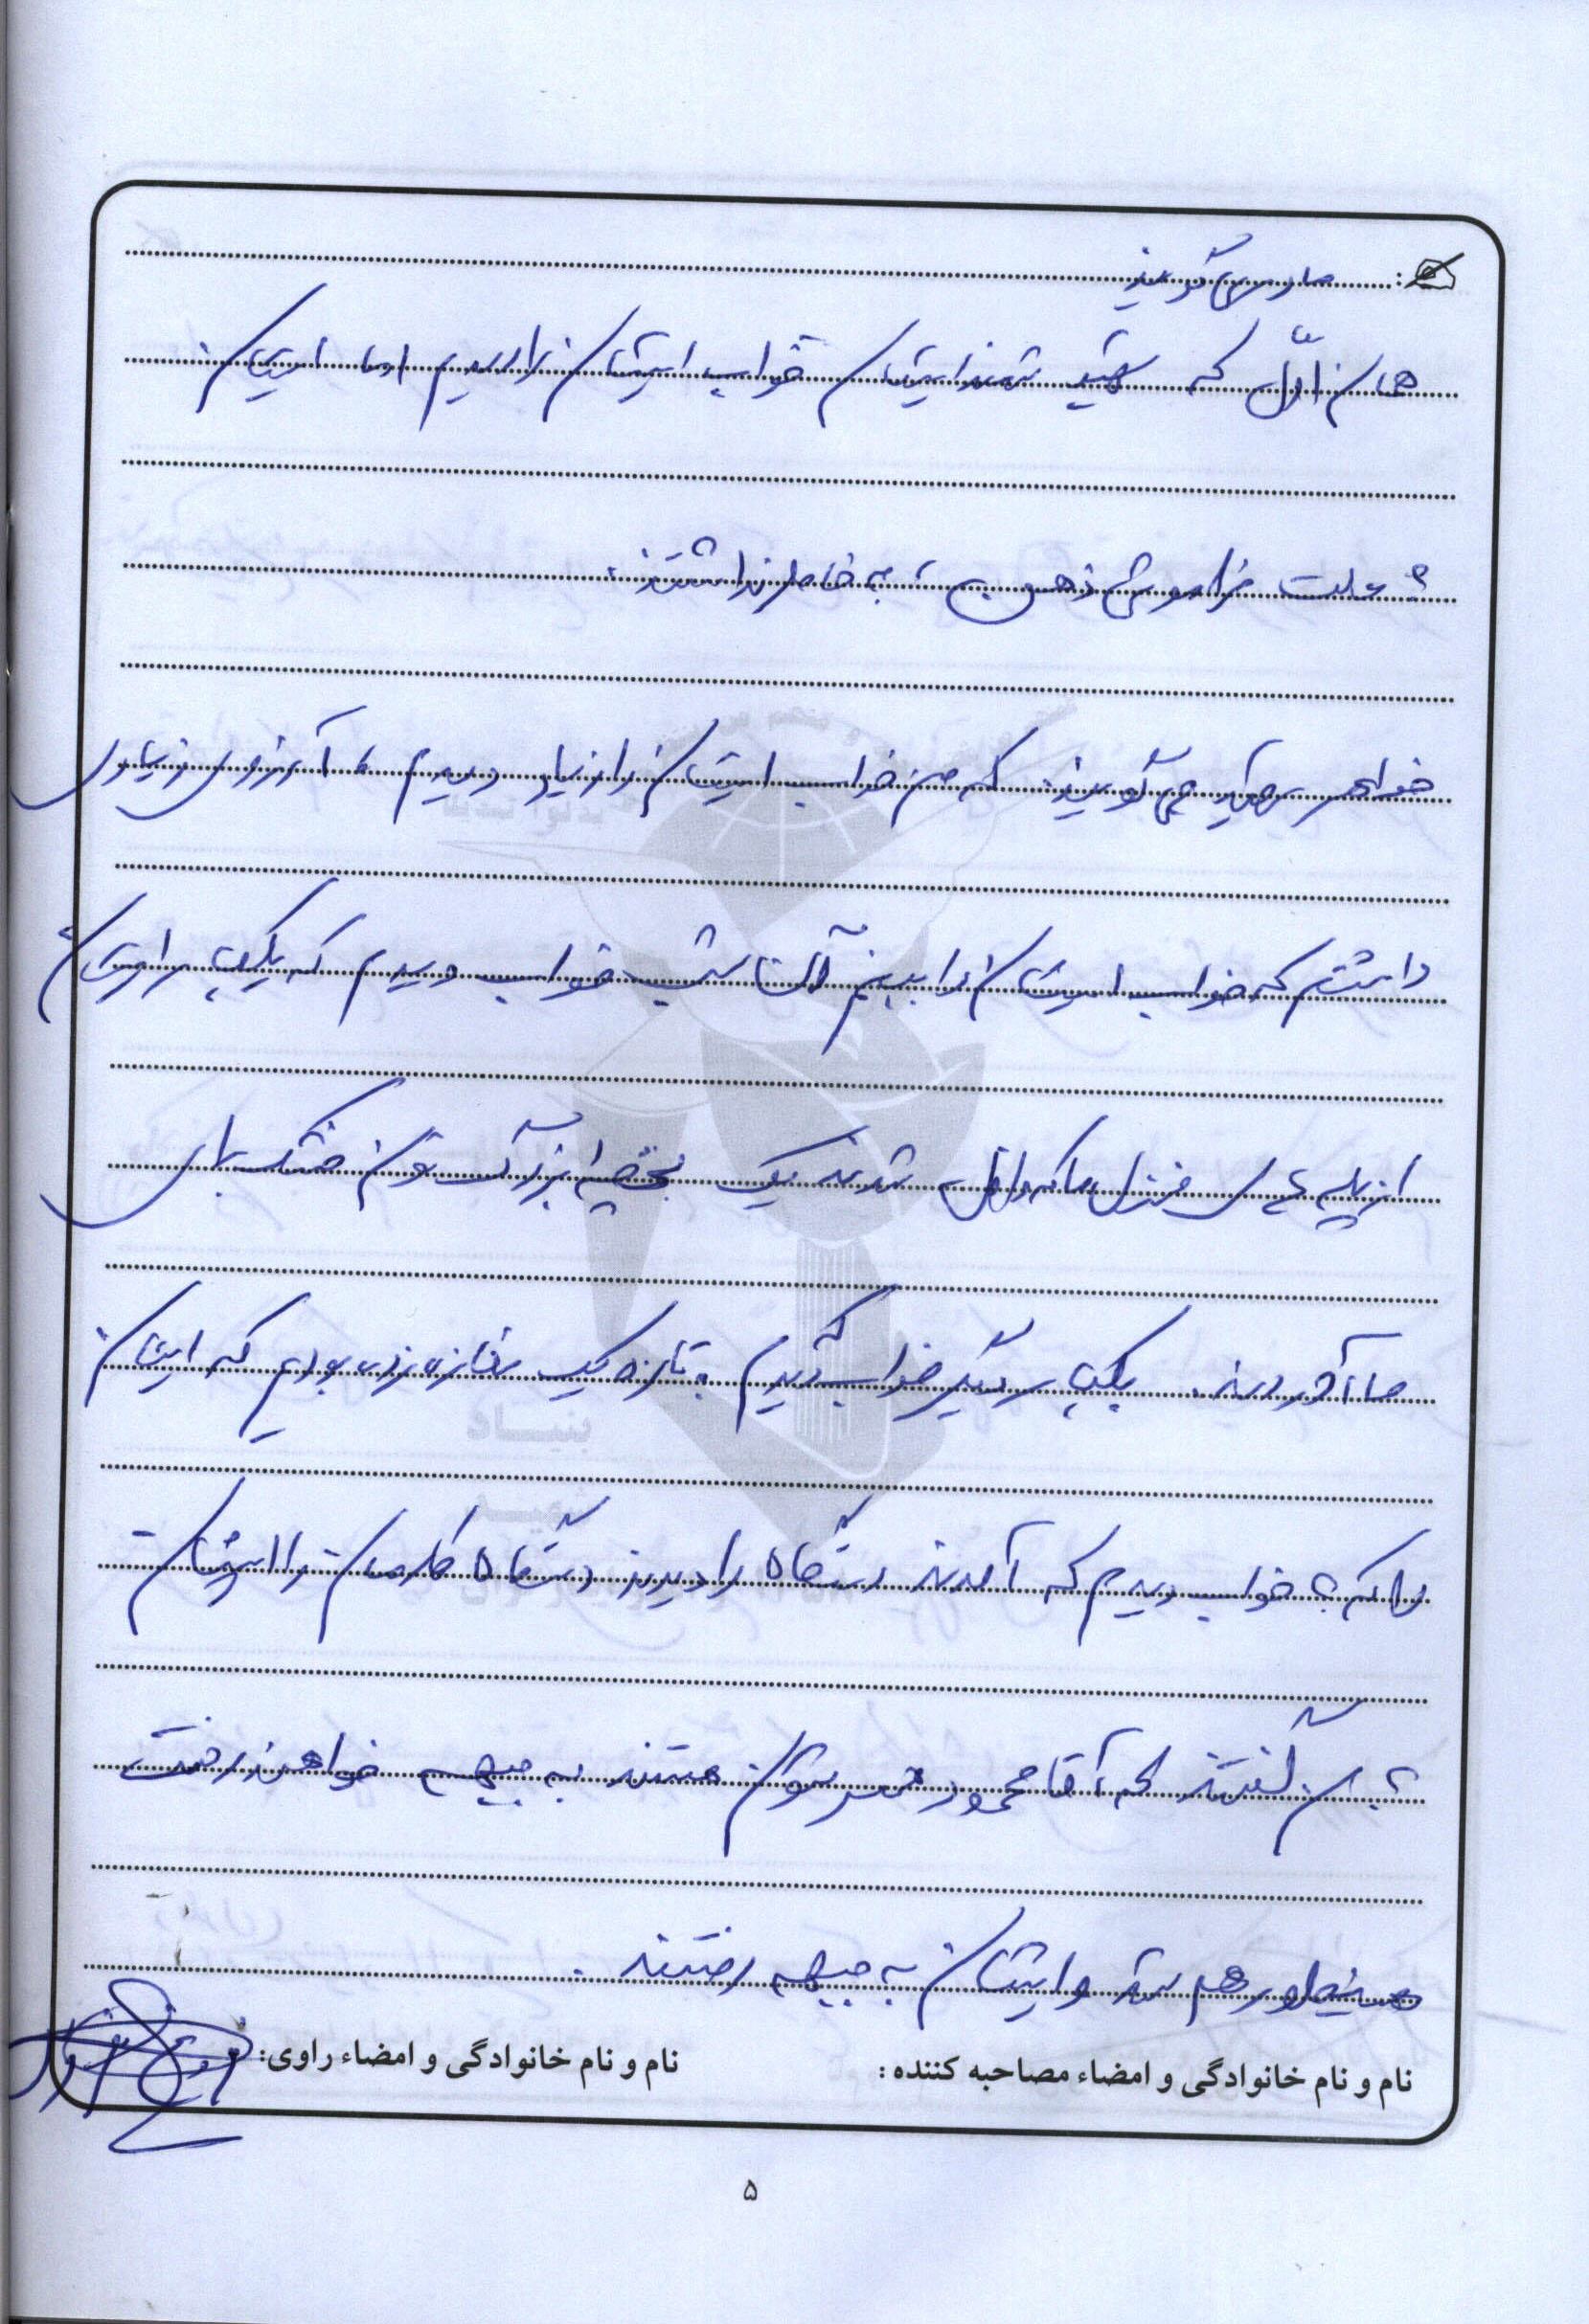 مادر می‌گویند
همان اوّل که شهید شدند ایشان خواب ایشان را دیدیم اما ایشان
به علت فراموشی ذهن به خاطر نداشتند.
خواهر شهید می‌گویند: که من خواب ایشان را زیاد دیدم، آرزوی زیادی
داشتم که خواب ایشان را ببینم آن شب خواب دیدم که یکی ایشان
از پله های منزل ما که داخل شدند یک بزرگ نان خشک برای
ما آوردند. یکبار دیگر خواب دیدم تازه یک مغازه زده بودیم که ایشان
که خواب دیدم که آمدند دستگاه را دیدند دستگاه کارمان را ایشان
به من گفتند که آقا محمود همسرتان هستند به جبهه خواهند رفت
همینطور هم شد و ایشان به جبهه رفتند.
نام و نام خانوادگی و امضاء مصاحبه کننده: نام و نام خانوادگی و امضاء راوی:
۵